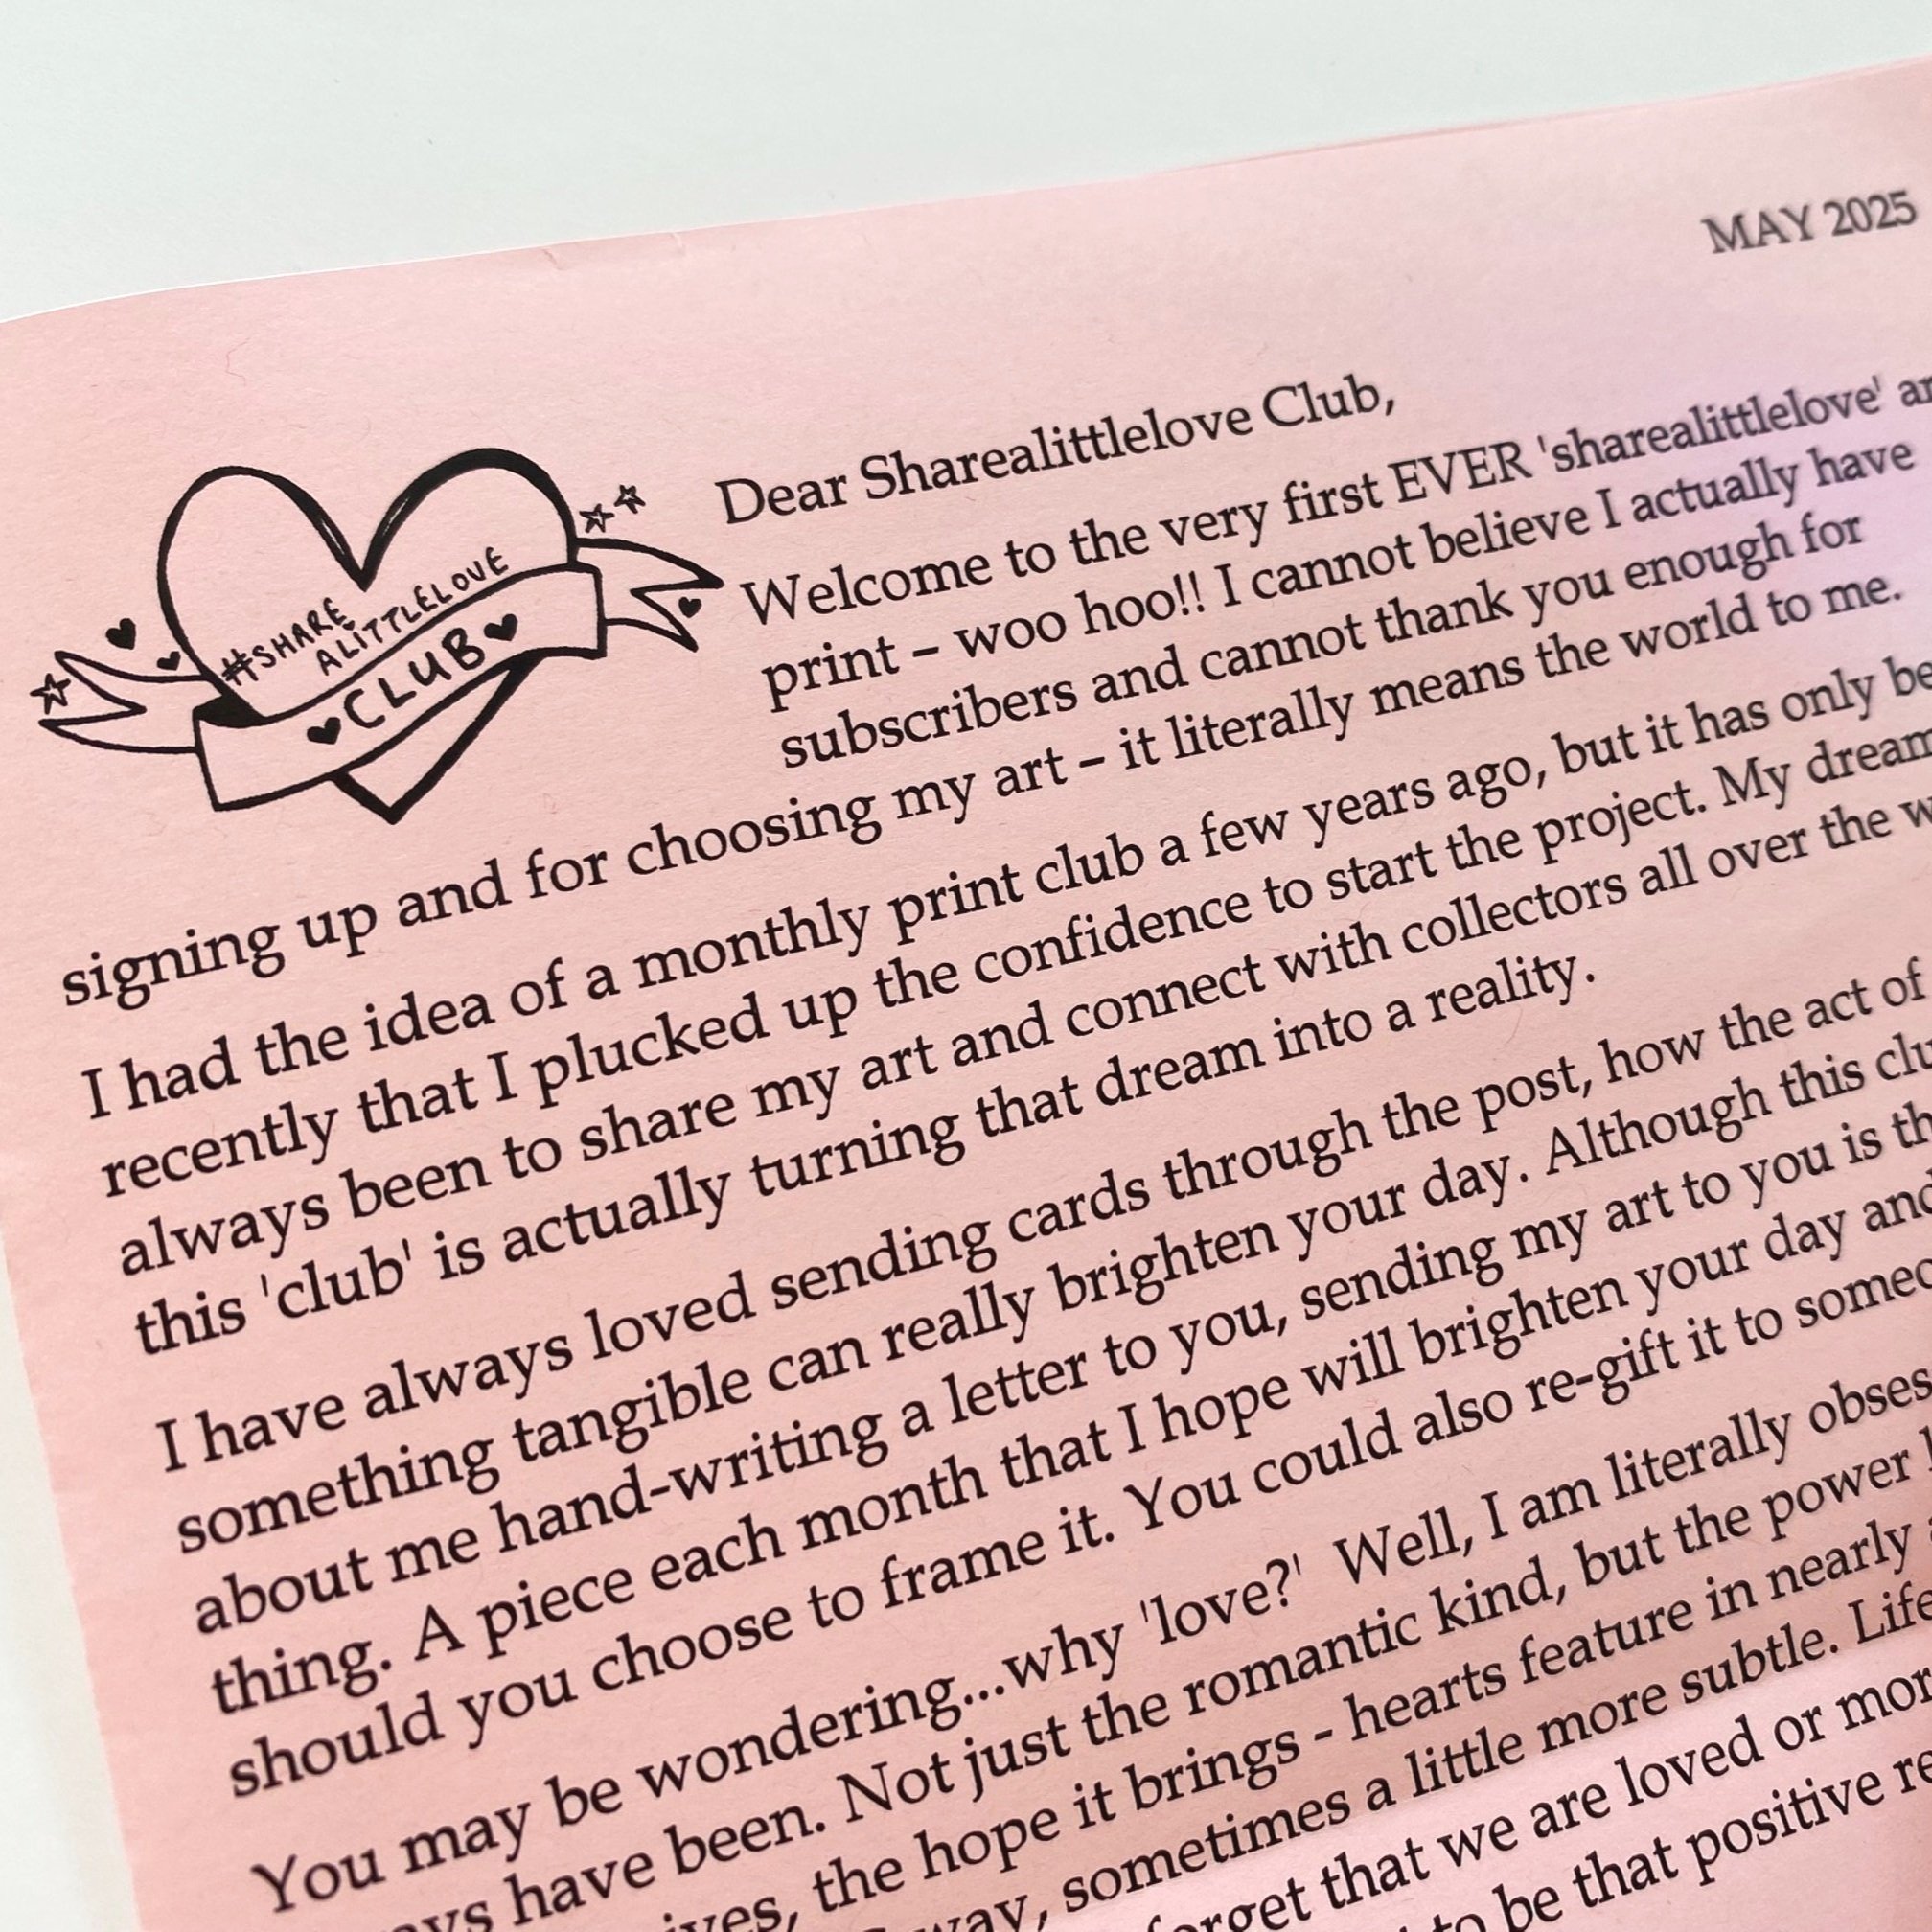 MAY 2025
#SHARE
ALITTLELOVE
CLUB
Dear Sharealittlelove Club,
Welcome to the very first EVER 'sharealittlelove'
print – woo hoo!! I cannot believe I actually have
subscribers and cannot thank you enough for
signing up and for choosing my art – it literally means the world to me.
I had the idea of a monthly print club a few years ago, but it has only
recently that I plucked up the confidence to start the project. My dream
always been to share my art and connect with collectors all over the
this 'club' is actually turning that dream into a reality.
I have always loved sending cards through the post, how the act of
something tangible can really brighten your day. Although this
about me hand-writing a letter to you, sending my art to you is
thing. A piece each month that I hope will brighten your day and
should you choose to frame it. You could also re-gift it to
You may be wondering...why 'love?' Well, I am literally
have been. Not just the romantic kind, but the power
the hope it brings - hearts feature in nearly
sometimes a little more subtle. Life
that we are loved or
to be that positive